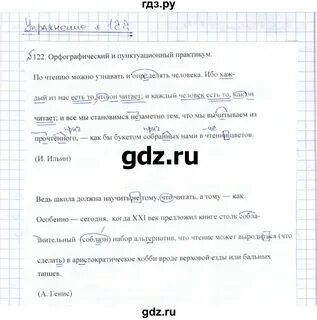 gdz.ru
Упражнение № 122
§122. Орфографический и пунктуационный практикум.
По чтению можно узнавать и определять человека. Ибо каж-
дый из нас есть то, что он читает; и каждый человек есть то, как он
читает; и все мы становимся незаметно тем, что мы вычитываем из
прич прил сущ
прочтённого, — как бы букетом собранных нами в чтении цветов.
(И. Ильин)
gdz.ru
Ведь школа должна научить не тому, что читать, а тому — как
Особенно — сегодня, когда XXI век предложил книге столь собла-
знительный (соблазн) набор альтернатив, что чтение может выродиться (что
сделать) в аристократическое хобби вроде верховой езды или бальных
танцев.
(А. Генис)
gdz.ru